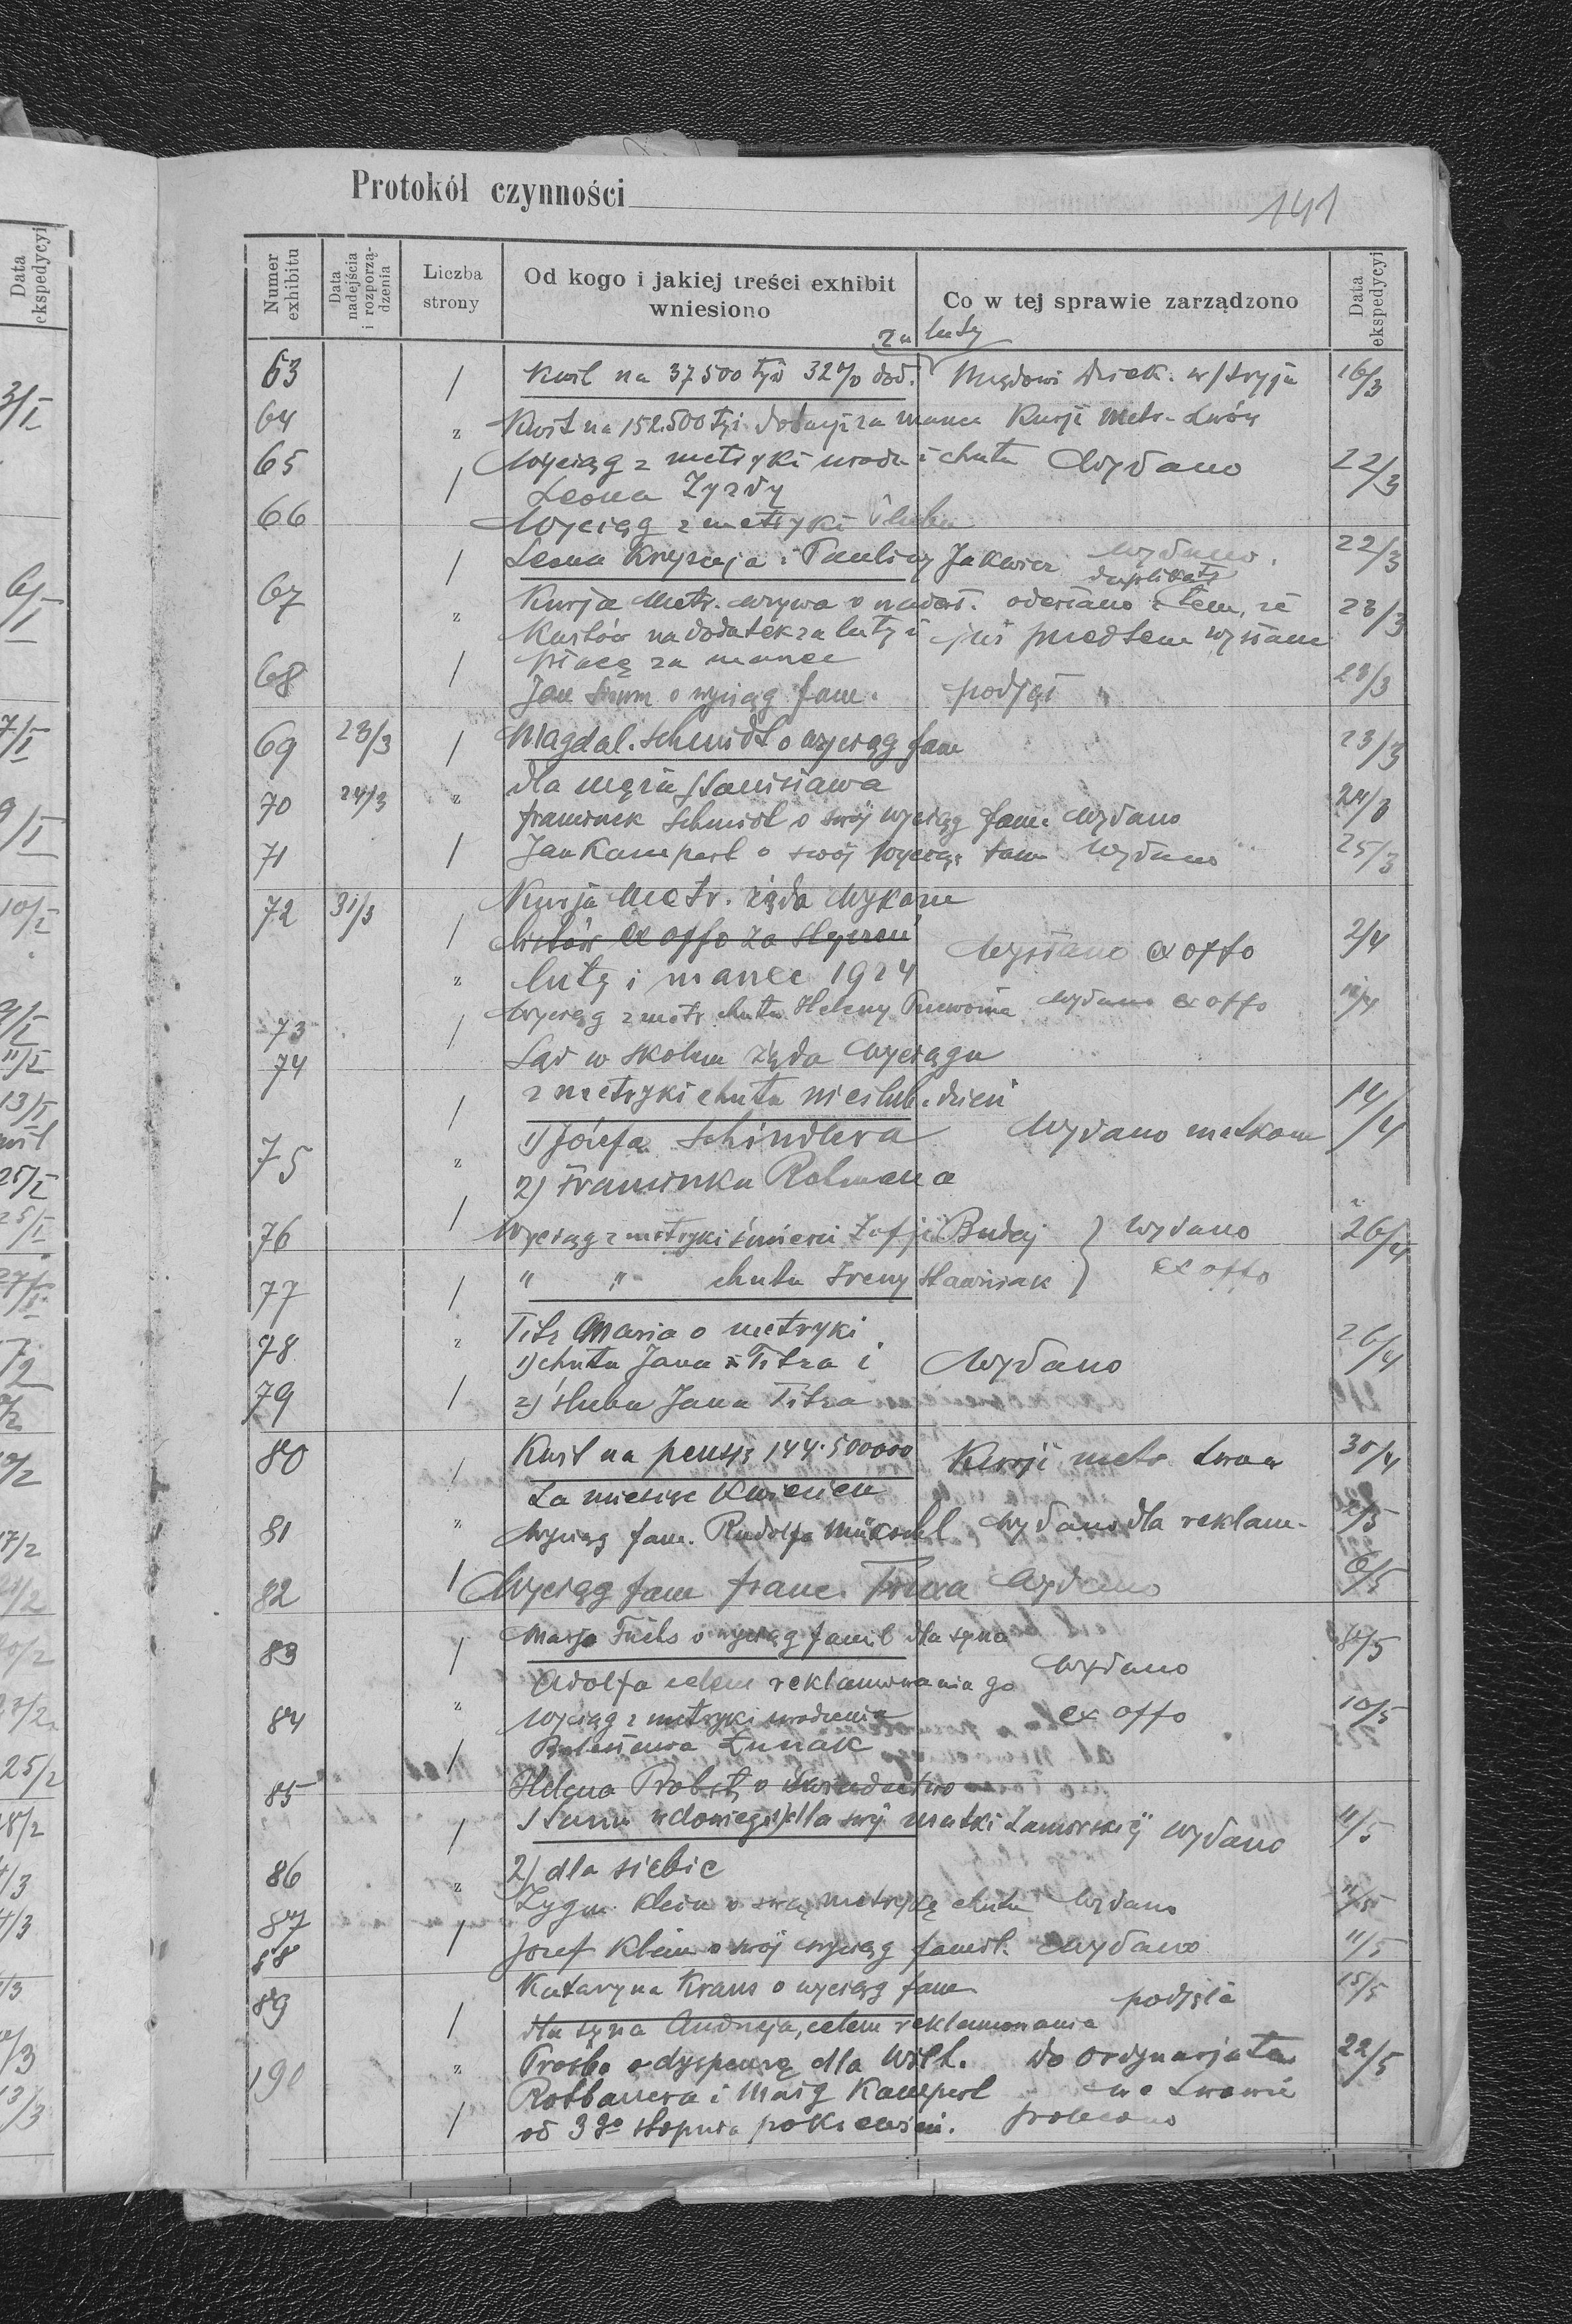 Protokół czynności
141
Numer exhibitu
Data nadejścia i rozporzą-dzenia
Liczba strony
Od kogo i jakiej treści exhibit wniesiono
Co w tej sprawie zarządzono
Data ekspedycyi
za luty
63 / Kwit na 37500 tyś 32% dod. Urzędowi w Stryju 16/3
64 " Kwit na 152.500 tyś. dotacji za marzec Kurji Metr. Lwów
65 / Wyciąg z metryki urodz. i chrztu Wydano 22/3
Leona Zyzdy
66 Wyciąg z metryki ślubu
/ Leona i Pauliny Jakwicz wydano. 22/3
duplikaty
67 " Kurja Metr. wzywa o nadesł. odesłano z tem, że 23/3
Kwitów na dodatek za luty i już przedtem wysłane
68 / płacę za marzec
Jan o wyciąg fam. podjął " 23/3
69 23/3 / Magdal. Schmidt o wyciąg fam 23/3
dla męża Stanisława
70 24/3 " Franciszek Schmidt o swój wyciąg fam. Wydano 24/3
71 / Jan Kampert o swój wyciąg fam Wydano 25/3
72 31/3 Kurja Metr. żąda wykazu
/ ex offo za styczeń, Wysłano ex offo 2/4
" luty i marzec 1924
73 / Wyciąg z metr. chrztu Heleny wydano ex offo
74 Sąd w Skolem żąda Wyciągu
/ z metryki chrztu nieślub. dzieci 14/4
75 " 1) Józefa Schindlera Wydano matkom
2) Franciszka Rohmana
76 / Wyciąg z metryki śmierci Zofji Budej } Wydano 26/4
77 / " " chrztu Ireny Sławniak } ex offo
78 " Titz Maria o metryki
1) chrztu Jana Titza i Wydano 26/4
79 / 2) ślubu Jana Titza
80 / Kwit na pensję 144.500000 Kurji metr Lwów 30/4
za miesiąc Kwiecień
81 " Wyciąg fam. Rudolfa Wydano dla reklam. 2/5
82 / Wyciąg fam franc. Wydano 6/5
83 / Marja Fuchs o wyciąg famil dla syna
Adolfa celem reklamowania go Wydano
84 " Wyciąg z metryki urodzenia ex offo 10/5
/ Bolesława Łunak
85 Helena Probst o świadectwo
/ Stanu wdowiego 1) dla swej matki Zamorskiej Wydano 11/5
86 " 2) dla siebie
87 Zygm. Klein o swą metrykę chrztu Wydano 11/5
88 / Józef Klein o swój wyciąg famil. Wydano 11/5
89 Katarzyna Kraus o wyciąg fam podjęła 15/5
/ dla syna Andrzeja, celem reklamowania
190 " Prośba o dyspensę dla Wilh. do ordynarjatu 22/5
Rotbauera i Marij Kampert we Lwowie
/ od 3 go stopnia pokrewień.